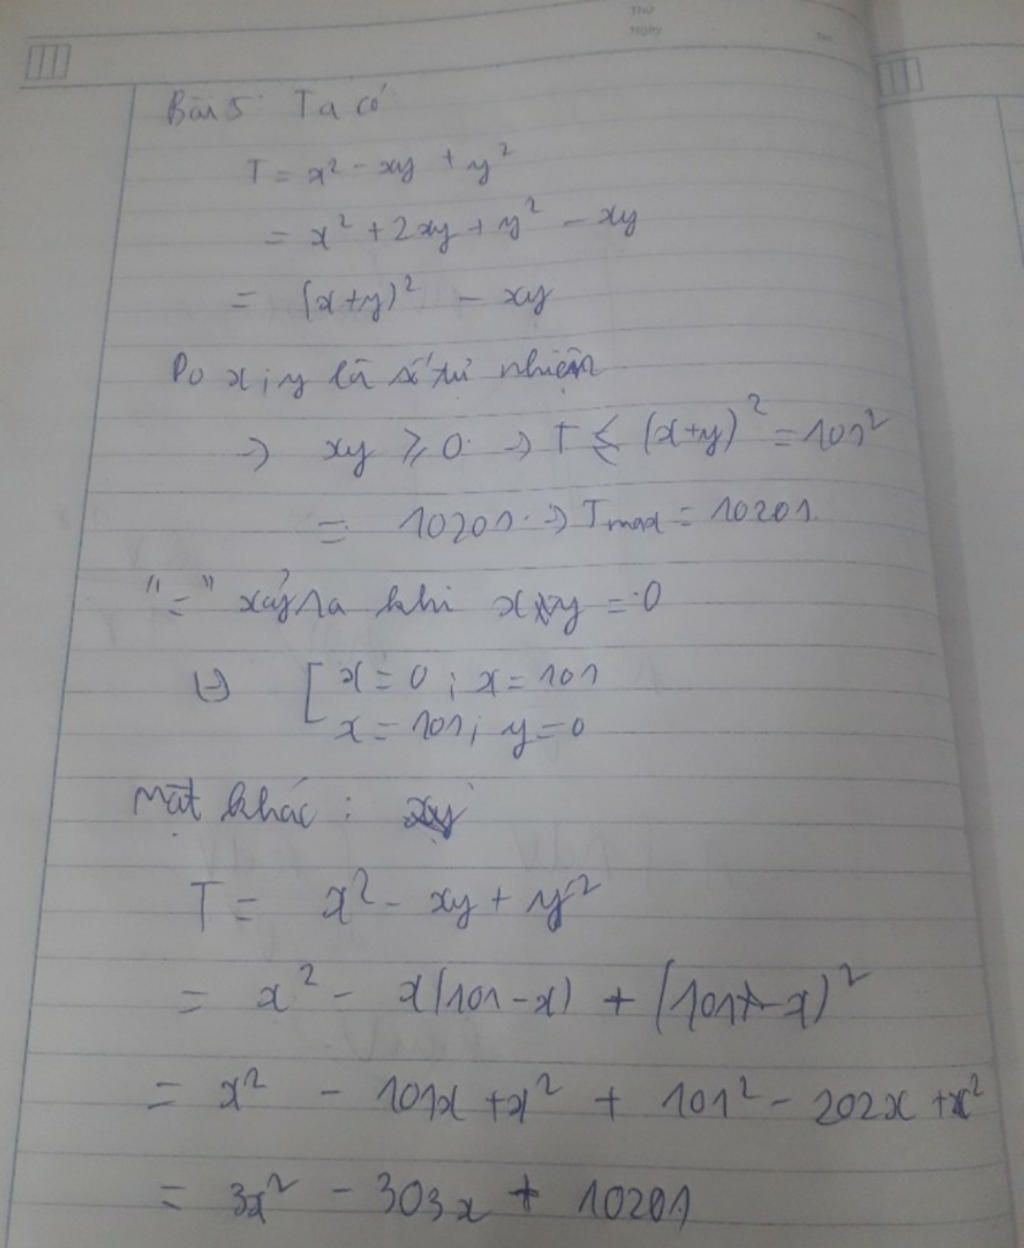 Thứ
Ngày
Bài 5: Ta có
T = x² - xy + y²
= x² + 2xy + y² - xy
= (x+y)² - xy
Do x; y là số tự nhiên
=> xy ≥ 0 => T ≤ (x+y)² = 101²
= 10201 => Tmax = 10201.
"=" xảy ra khi xy = 0
<=> [ x = 0 ; x = 101
x = 101; y = 0
Mặt khác :
T = x² - xy + y²
= x² - x(101-x) + (101-x)²
= x² - 101x + x² + 101² - 202x + x²
= 3x² - 303x + 10201